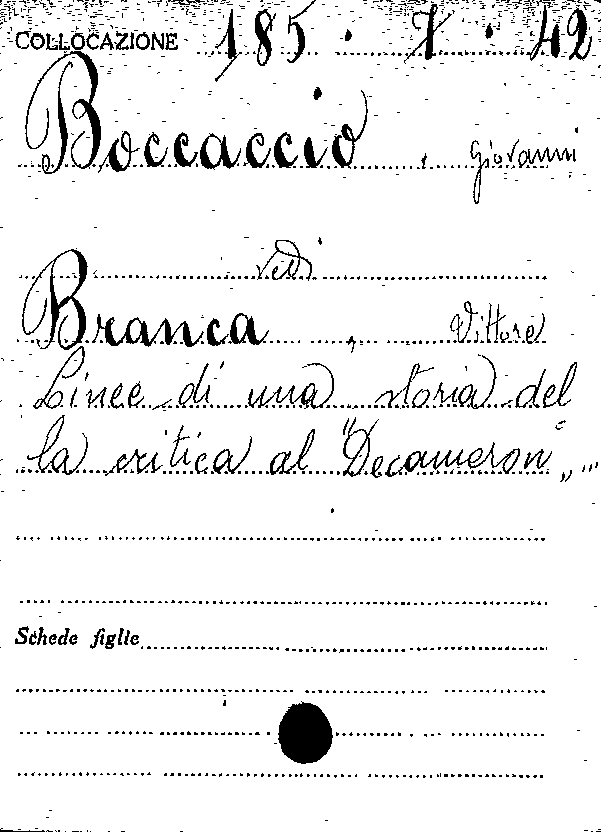 COLLOCAZIONE 185 . 7 . 42
Boccaccio, Giovanni
vedi
Branca, Vittore
Linee di una storia del=
la critica al "Decameron„...
Schede figlie